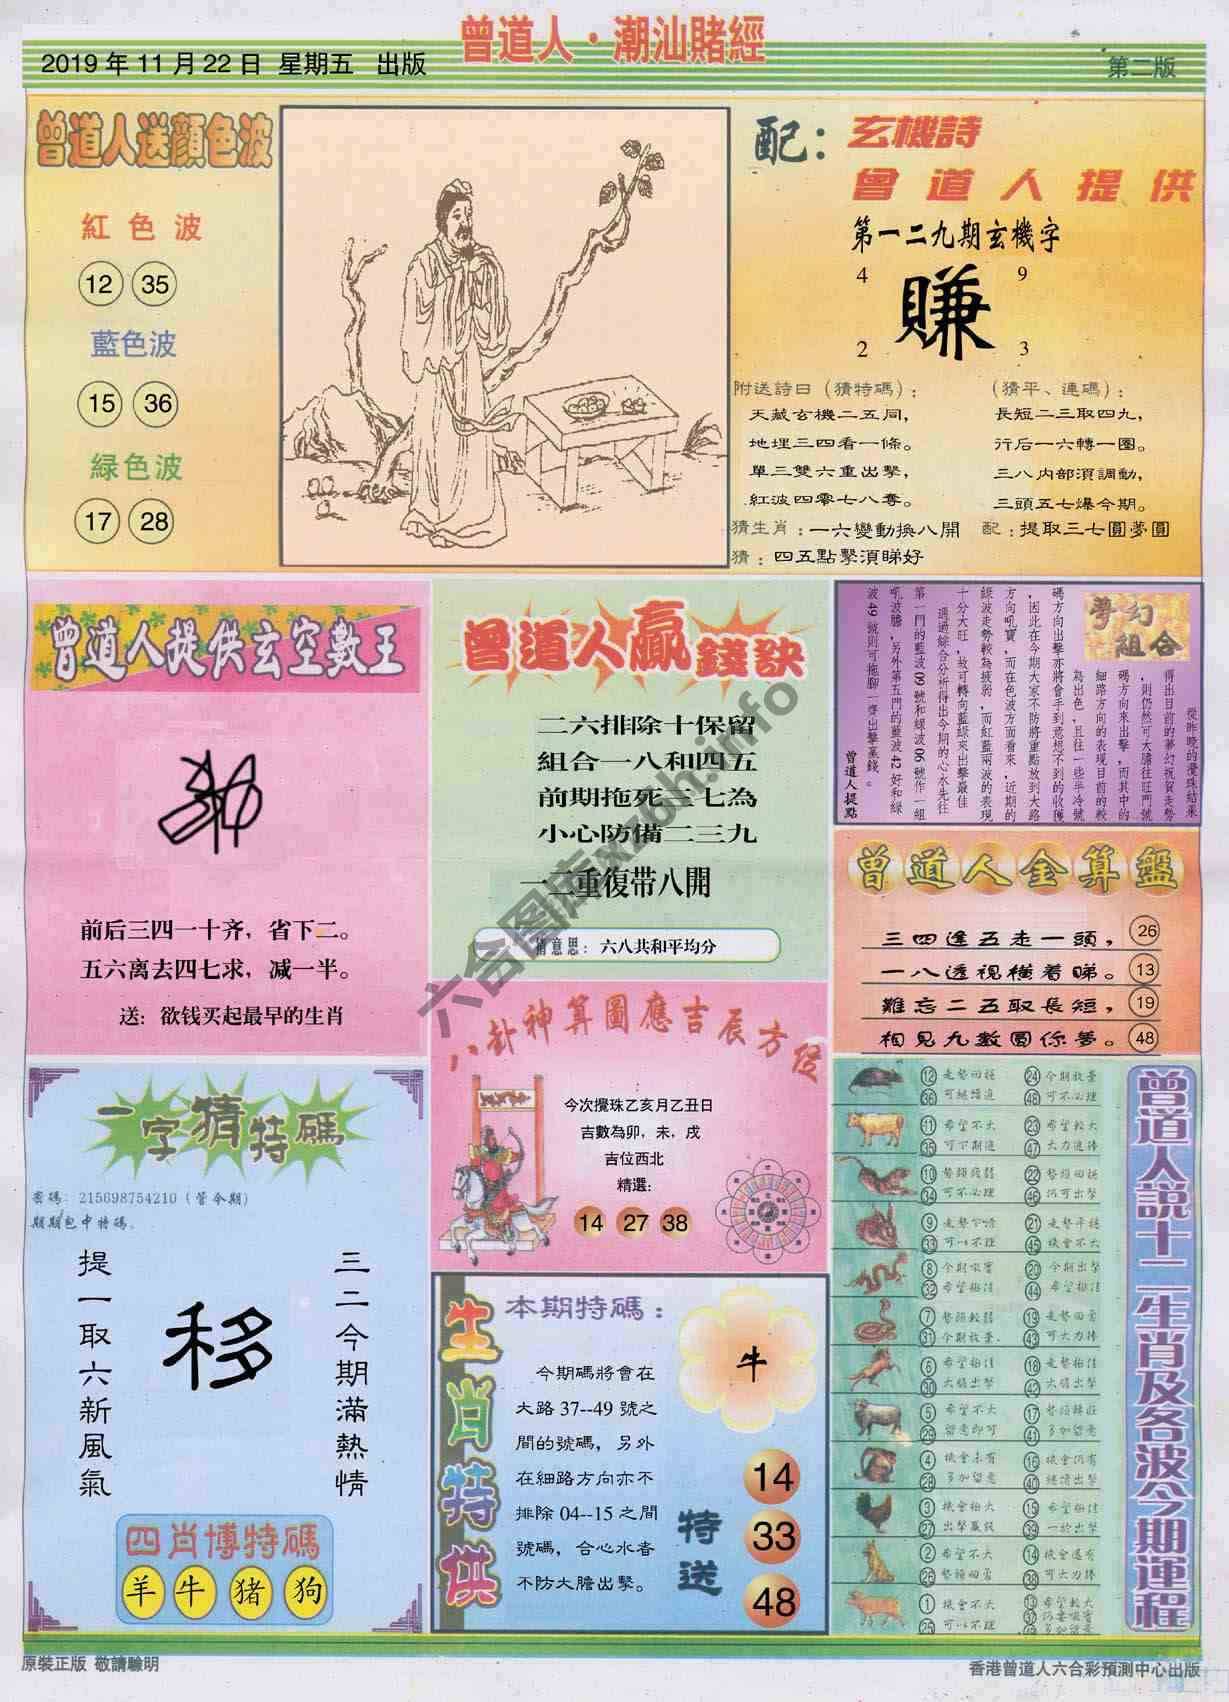 曾道人·潮汕賭經
2019 年 11 月 22 日 星期五 出版
第二版
曾道人送顏色波
紅色波
12 35
藍色波
15 36
緑色波
17 28
配：玄機詩
曾道人提供
第一二九期玄機字
4 9
賺
2 3
附送詩曰（猜特碼）：
天藏玄機二五同，
地埋三四看一條。
單三雙六重出擊，
紅波四零七八奪。
（猜平、連碼）：
長短二三取四九，
行后一六轉一圈。
三八内部須調動，
三頭五七爆今期。
猜生肖：一六變動換八開
配：提取三七圓夢圓
猜：四五點擊須睇好
曾道人提供玄空數王
前后三四一十齐，省下二。
五六离去四七求，减一半。
送：欲钱买起最早的生肖
曾道人贏錢訣
二六排除十保留
組合一八和四五
前期拖死三七為
小心防備二三九
一二重復带八開
猜意思：六八共和平均分
夢幻組合
從昨晚的攪珠結果
得出目前的夢幻祝賀走勢
，則仍然可大膽往旺門號
碼方向來出擊，而其中的
細路方向的表現目前的較
為出色，且往一些半冷號
碼方向出擊亦將會手到意想不到的收穫
，因此在今期大家不防將重點放到大路
方向吼實，而在色波方面看來，近期的
綠波走勢較為疲弱，而紅藍兩波的表現
十分大旺，故可轉向藍綠來出擊最佳
。通過綜合分析得出今期的心水先往
第一門的藍波 09 號和綠波 06 號作一組
吼波膽，另外第五門的藍波 42 好和綠
波 49 號則可拖腳一齊出擊贏錢。
曾道人提點
曾道人金算盤
三四逢五走一頭， 26
一八透視橫着睇。 13
難忘二五取長短， 19
相見九數圓你夢。 48
八卦神算圖應吉辰方位
今次攪珠乙亥月乙丑日
吉數為卯，未，戌
吉位西北
精選：
14 27 38
一字猜特碼
密碼：215698754210（管今期）
期期包中特碼。
提一取六新風氣
移
三二今期滿熱情
四肖博特碼
羊 牛 猪 狗
生肖特供
本期特碼：
今期碼將會在
大路 37--49 號之
間的號碼，另外
在細路方向亦不
排除 04--15 之間
號碼，合心水者
不防大膽出擊。
牛
特送
14
33
48
曾道人説十二生肖及各波今期運程
12 走勢回穩 24 今期放量
36 可繼續追 48 可不必理
11 希望不大 23 希望較大
35 可下期追 47 大力追捧
10 勢頭疲弱 22 勢頭回穩
34 可不必理 46 仍可出擊
9 走勢下滑 21 走勢平穩
33 可以不理 45 機會不大
8 今期吼實 20 今期出擊
32 希望極佳 44 希望極佳
7 勢頭較弱 19 走勢回勇
31 今期放量 43 可大力捧
6 希望極佳 18 走勢極佳
30 大膽出擊 42 大膽出擊
5 希望不大 17 勢頭轉旺
29 留意即可 41 多加留意
4 機會未有 16 機會仍有
28 多加留意 40 繼續出擊
3 機會極大 15 希望極佳
27 出擊贏錢 39 一於出擊
2 希望不大 14 機會還有
26 勢頭回勇 38 可大力捧
1 機會不大 13 希望較大
25 可以不理 37 仍要吼實
49 多加留意
原裝正版 敬請驗明
香港曾道人六合彩預測中心出版
六合图库xz6h.info